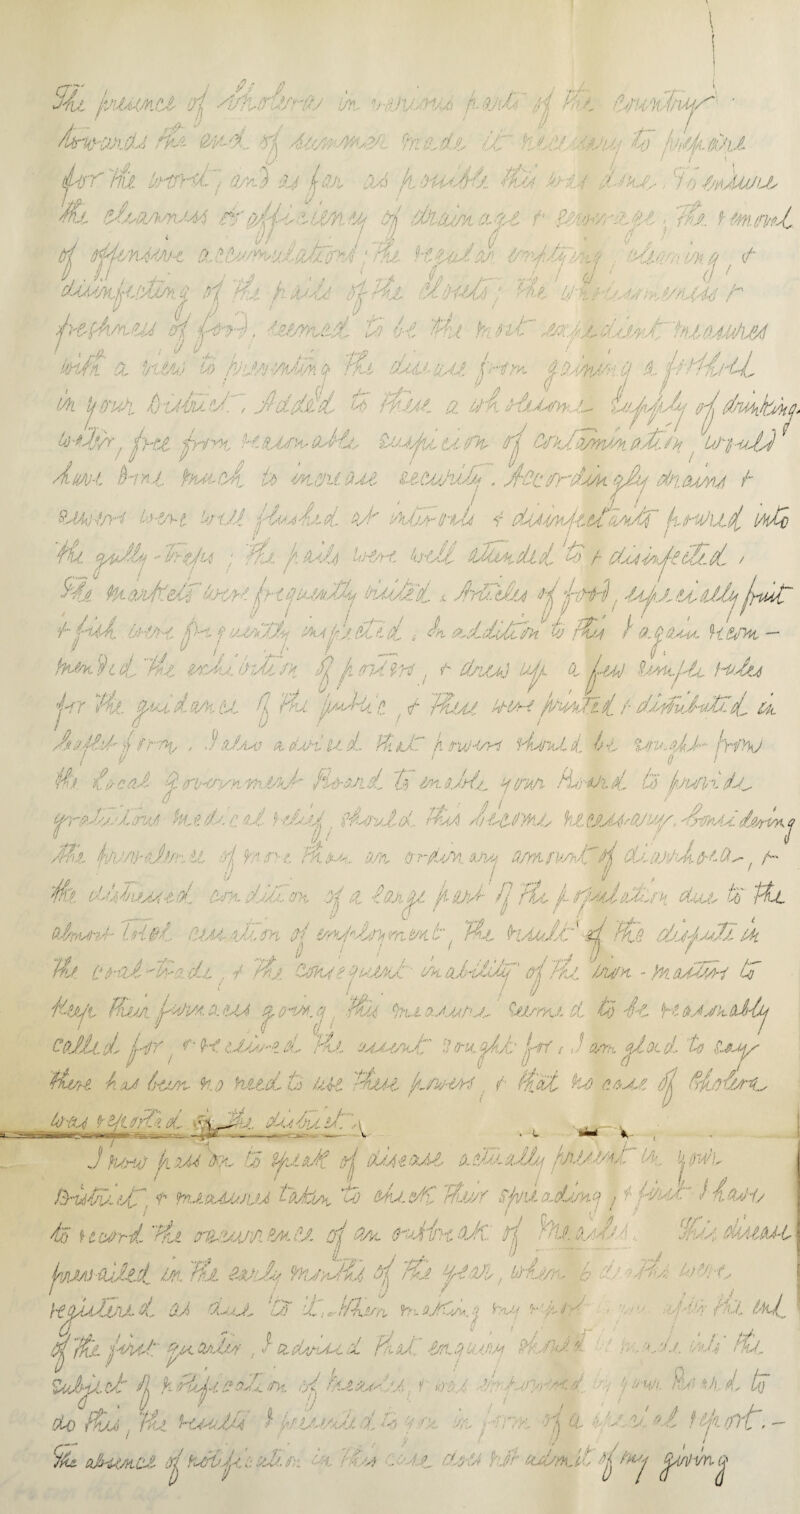 The presence of Cholera in various parts of the Country
towards the end of Summer made it necessary to prepare
for the worst, and as far as possible this was done. To ensure
the cleanness & efficiency of drainage & sewerage; the removal
of offensive accumulations; the regular emptying, cleansing, &
disinfecting of the pails of the closets; the wholesomeness &
freshness of food, seemed to be the most expedient measures
with a view to preventing the disease from gaining a foothold
in your District. Added to these a wholesome supply of drinking
water, free from reasonable suspicion of contamination, would
have done much to increase security. Accordingly drains &
sewers were well flushed at intervals & disinfectants poured into
the gully-traps; the pails were well attended to & disinfected,
The markets were frequently visited. Articles of food, especially fruit
& fish were frequently inspected. In addition to this I again recom-
mended the exhibition of posters, & drew up a few simple rules
for the guidance of the public, & these were printed & distributed in
leaflet form. I also advised that powers should be sought from
the Local Government Board to enable your Board to provide
gratuitous medical relief, should this become necessary. Considering
the prevalence of more than an ordinary amount of diarrhoea, &
the distressed condition of a large part of the population due to the
almost total cessation of employment, the result of the dispute in
the coal-trade, & the consequent inability of the iron-masters to
keep their furnaces going, this measure seemed to be reasonably
called for, & received the assent sought for. I am glad to say
there has been no need to use these powers, & that no case of Cholera
was reported in the district.
I now pass on to speak of disease actually present in your
District, & measures taken to check their spreading, & first I have
to record the occurrence of an outbreak of Measles. This disease
prevailed in the early months of the year, when 6 deaths were
registered as due to it. When making my report to you after the end
of the first quarter, I advised that enquiry should be made into the
subject of notification of measles, & was empowered by your Board to
do this, the results I presented to you in form of a special report. —
The absence of notification in this case does not admit of my giving